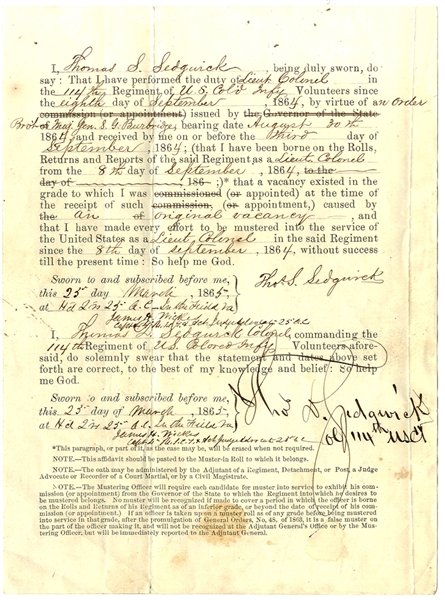 I, Thomas S. Sedgwick, being duly sworn, do
say: That I have performed the duty of Lieut Colonel in
the 114th Regiment of U.S. Cold Infy Volunteers since
the eighth day of September, 1864, by virtue of an order
commission (or appointment) issued by the Governor of the State
Maj. Gen. S. G. Burbridge, bearing date August 30th
1864, and received by me on or before the third day of
September, 1864; (that I have been borne on the Rolls,
Returns and Reports of the said Regiment as a Lieut. Colonel
from the 8th day of September, 1864, to the
day of 186 ;)* that a vacancy existed in the
grade to which I was commissioned (or appointed) at the time of
the receipt of such commission, (or appointment,) caused by
the an of original vacancy, and
that I have made every effort to be mustered into the service of
the United States as a Lieut. Colonel in the said Regiment
since the 8th day of September, 1864, without success
till the present time: So help me God.
Sworn to and subscribed before me, Thos. S. Sedgwick
this 25 day March, 1865,
at Hd Qrs 25 A.C. In the Field Va
James H. Wickes
I, Thomas D. Sedgwick Colonel, commanding the
114th Regiment of U.S. Colored Infy Volunteers afore-
said, do solemnly swear that the statement and dates above set
forth are correct, to the best of my knowledge and belief: So help
me God.
Sworn to and subscribed before me,
this 25 day of March, 1865, Thos D. Sedgwick
at Hd Qrs 25 A.C. In the Field Va Col 114th USCT
James H. Wickes
*This paragraph, or part of it, as the case may be, will be erased when not required.
NOTE.—This affidavit should be pasted to the Muster-in Roll to which it belongs.
NOTE.—The oath may be administered by the Adjutant of a Regiment, Detachment, or Post, a Judge
Advocate or Recorder of a Court Martial, or by a Civil Magistrate.
NOTE.—The Mustering Officer will require each candidate for muster into service to exhibit his com-
mission (or appointment) from the Governor of the State to which the Regiment into which he desires to
be mustered belongs. No muster will be recognized if made to cover a period in which the officer is borne
on the Rolls and Returns of his Regiment as of an inferior grade, or beyond the date of receipt of his com-
mission (or appointment.) If an officer is taken upon a muster roll as of any grade before being mustered
into service in that grade, after the promulgation of General Orders, No. 48, of 1863, it is a false muster on
the part of the officer making it, and will not be recognized at the Adjutant General's Office or by the Mus-
tering Officer, but will be immediately reported to the Adjutant General.